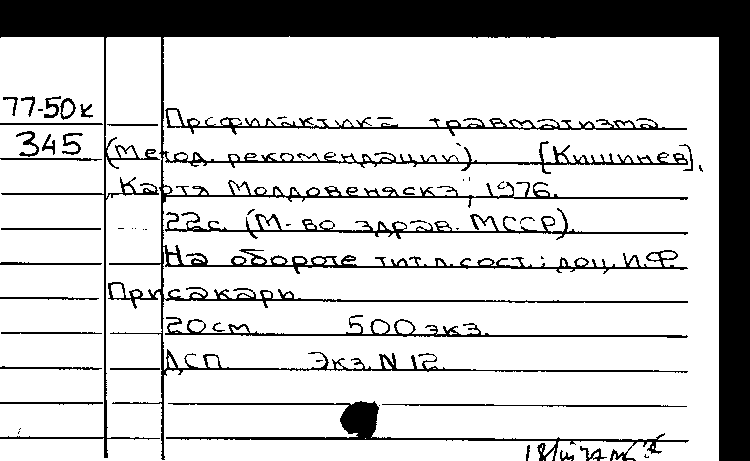 77-50к
345
Профилактика травматизма
(Метод. рекомендации). [Кишинев],
"Картя Молдовеняскэ", 1976.
22с. (М-во здрав. МССР).
На обороте тит.л.сост.: доц. И.Ф.
Присакарь.
20см. 500 экз.
ДСП Экз. N 12.